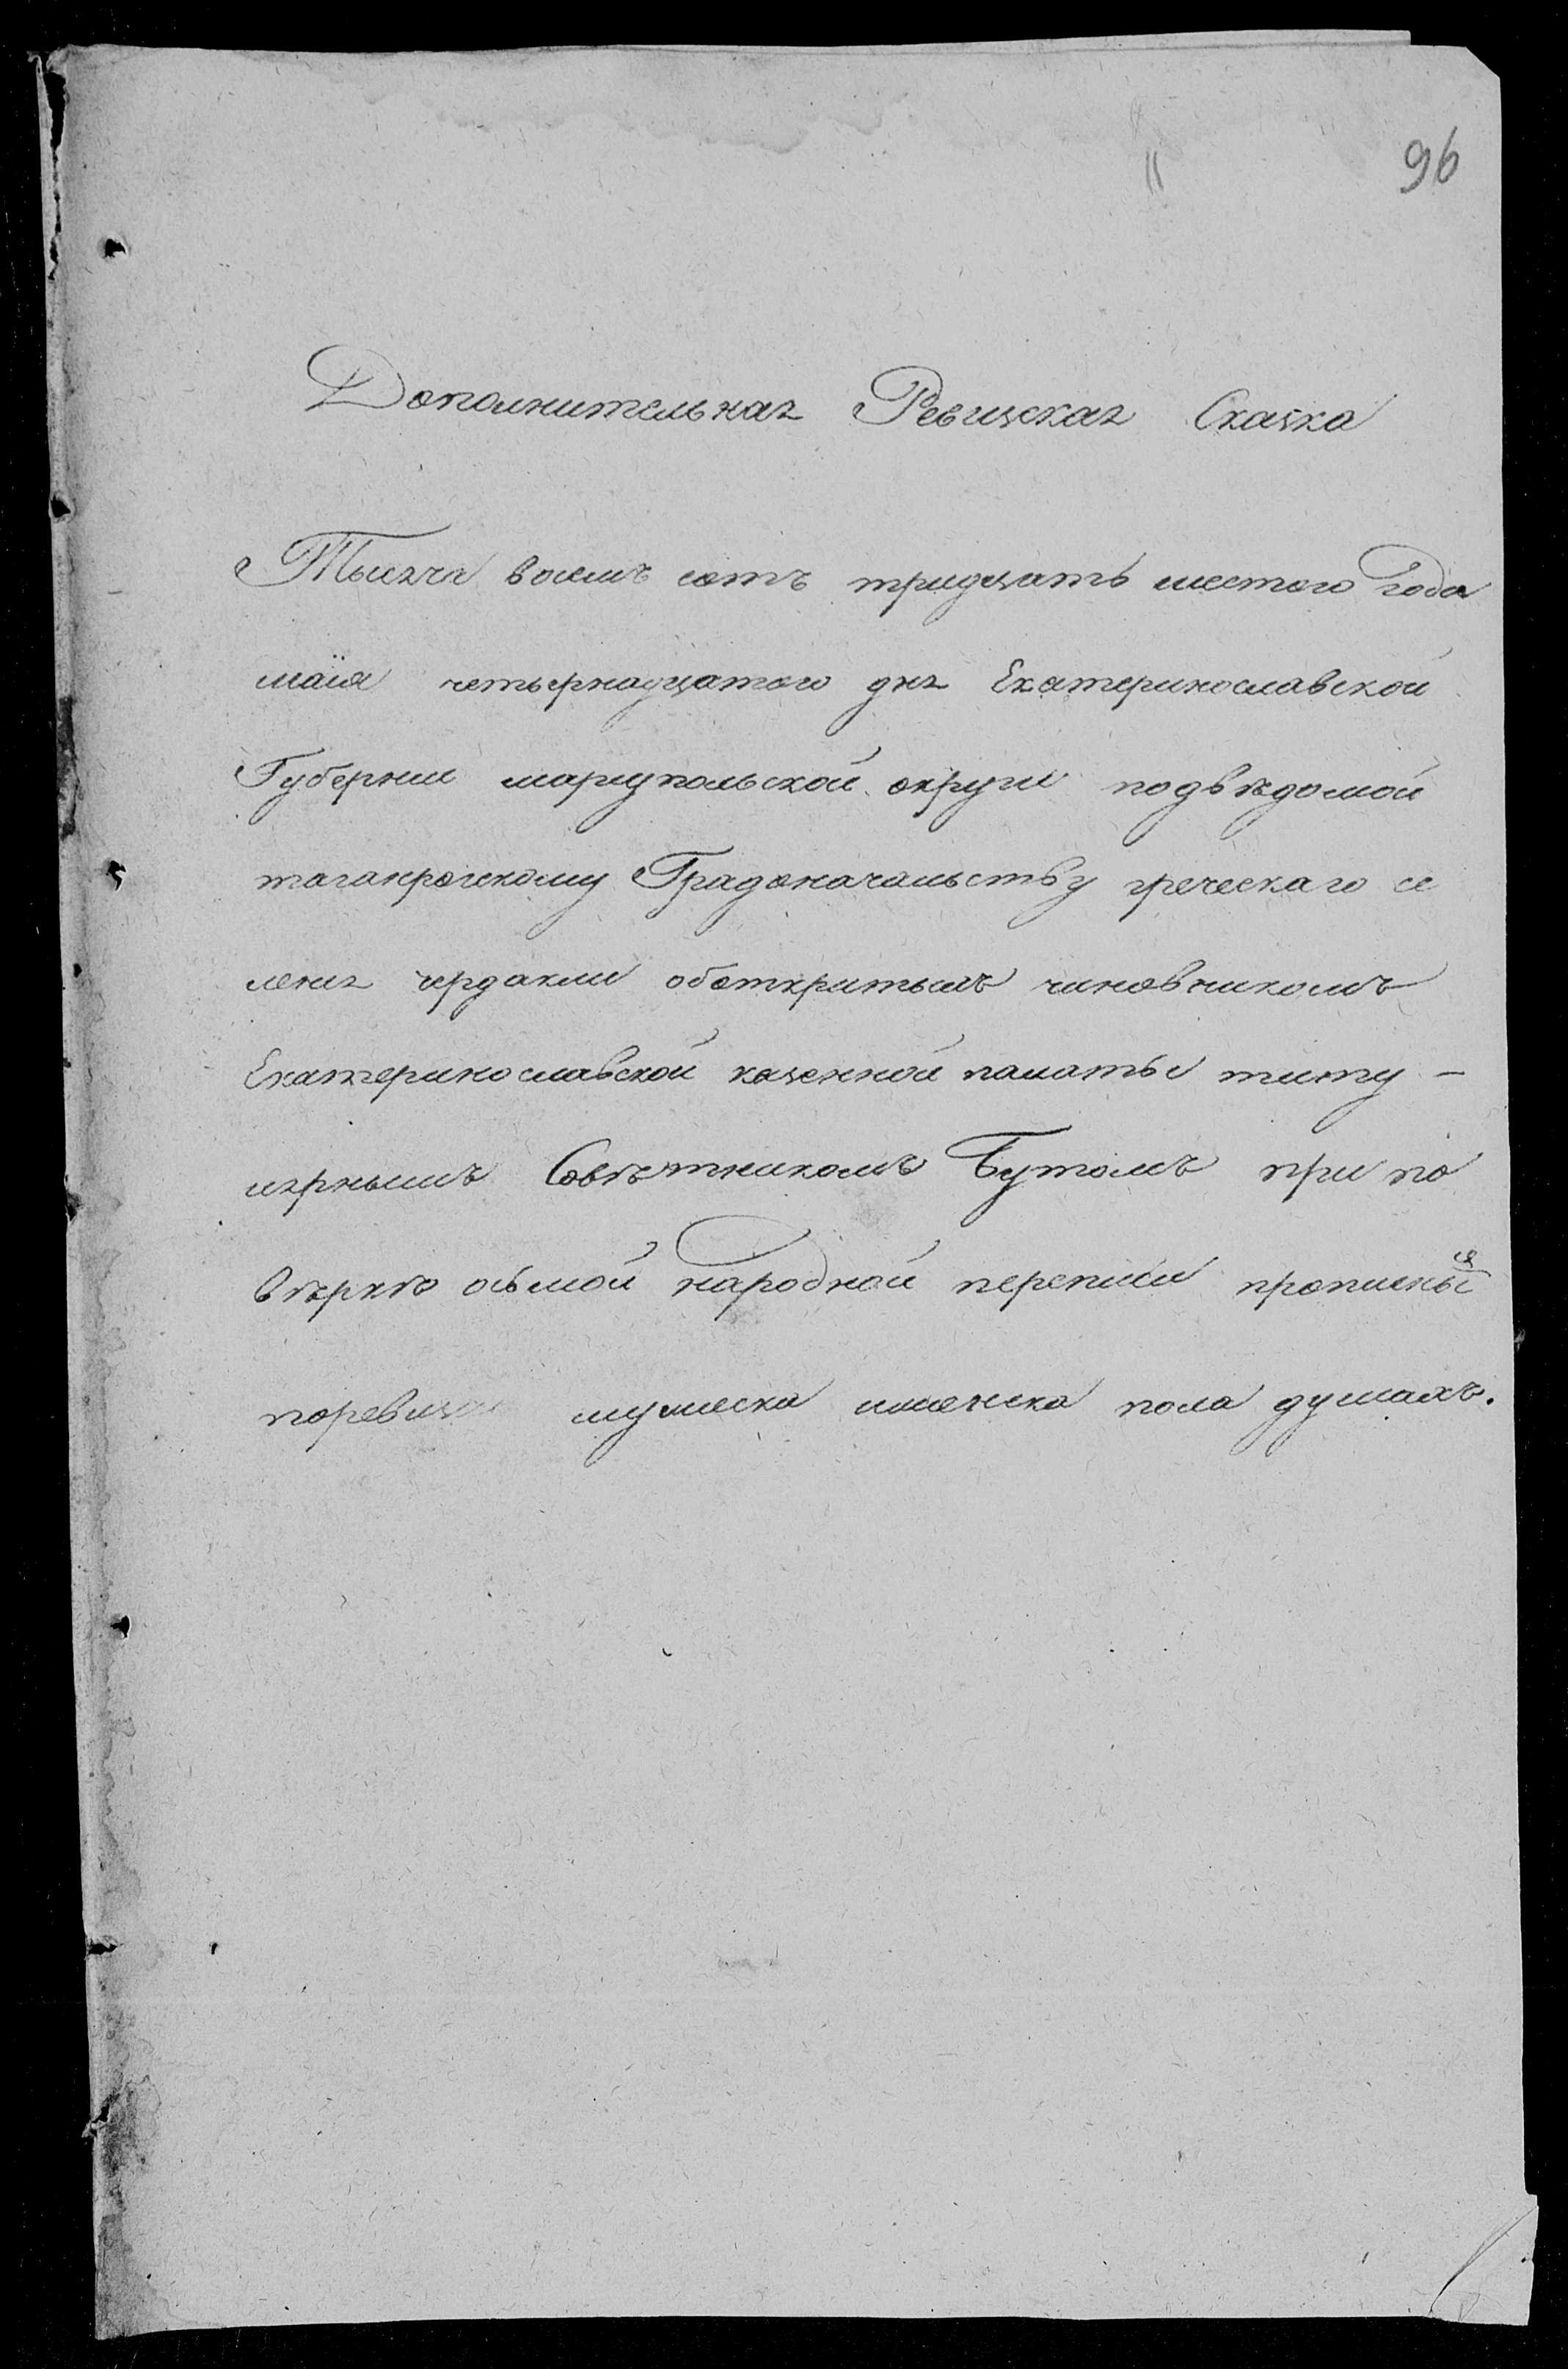 96
Дополнительная Ревизская Сказка
Тысяча восемь сотъ тридцать шестого года
маія четырнадцатого дня Екатеринославской
Губернии мариупольской округи подвѣдомой
таганрогскому Градоначальству греческаго се
ления чердакли оботкритымъ чиновникомъ
Екатеринославской казенной палаты титу-
лярнымъ Совѣтникомъ Бутомъ при по
вѣркѣ осьмой народной переписи прописныя
поревизіи мужеска иженска пола душахъ.